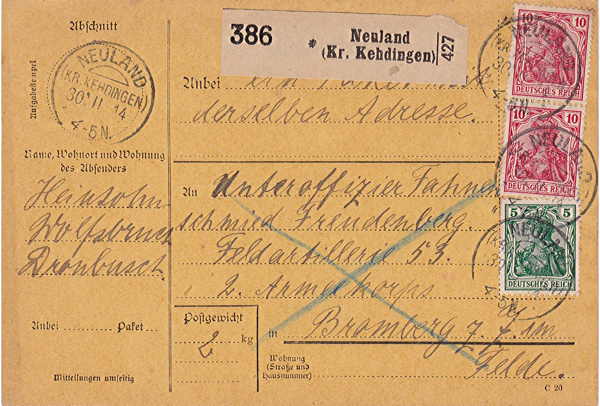 Abschnitt
Aufgabestempel
NEULAND
(KR. KEHDINGEN)
30 11 14
4-5N.
Name, Wohnort und Wohnung
des Absenders
Heinsohn
Wolfsbruch
Dronbusch
Anbei Paket
Mitteilungen umseitig
386
* Neuland
(Kr. Kehdingen)
427
Anbei ein Paket
derselben Adresse.
An Unteroffizier Fahnen
schmied Freudenberg.
Feldartillerie 53.
2. Armeekorps
in Bromberg z. Z. im
Felde.
Postgewicht
2 kg
Wohnung
(Straße und
Hausnummer)
C 20
10
DEUTSCHES REICH
NEULAND
10 10
DEUTSCHES REICH
NEULAND
5 5
DEUTSCHES REICH
NEULAND
4-5N.